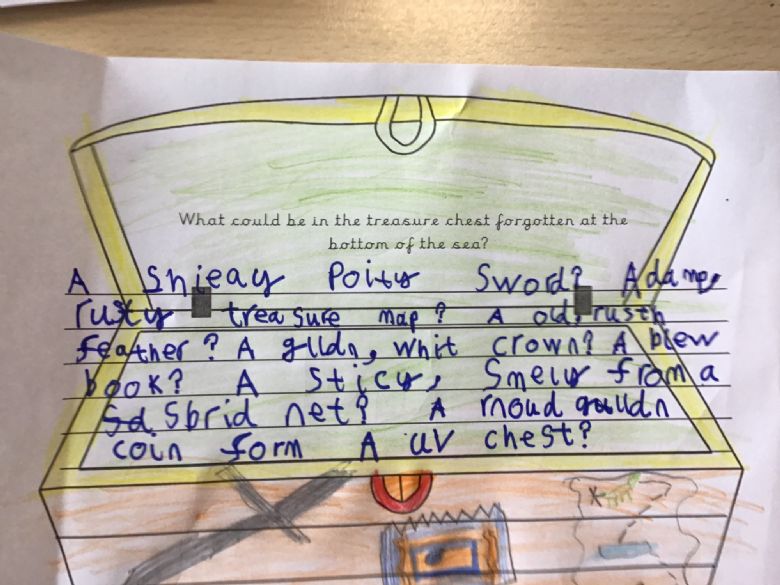 What could be in the treasure chest forgotten at the
bottom of the sea?
A Shieay Poity Sword? A damp,
rusty treasure map? A old, rusth
feather? A glldn, whit crown? A blew
book? A Sticy, Smely from a
Sbrid net? A rnoud gulldn
coin form A uv chest?